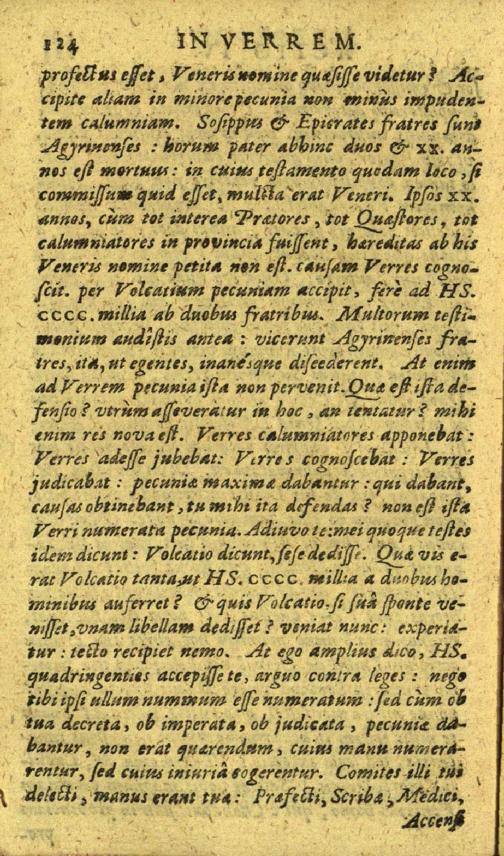 124 IN VERREM.
profectus esset, Veneris nomine quæsisse videtur? Ac-
cipite aliam in minore pecunia non minùs impuden-
tem calumniam. Sosippus & Epicrates fratres sunt
Agyrinenses: horum pater abhinc duos & xx. an-
nos est mortuus: in cuius testamento quodam loco, si
commissum quid esset, multta erat Veneri. Ipsos xx.
annos, cùm tot interea Prætores, tot Quæstores, tot
calumniatores in provincia fuissent, hæreditas ab his
Veneris nomine petita non est. causam Verres cogno-
scit. per Volcatium pecuniam accipit, ferè ad HS.
CCCC. millia ab duobus fratribus. Multorum testi-
monium audistis antea: vicerunt Agyrinenses fra-
tres, ita, ut egentes, inanésque discederent. At enim
ad Verrem pecunia ista non pervenit. Quæ est ista de-
fensio? vtrum asseveratur in hoc, an tentatur? mihi
enim res nova est. Verres calumniatores apponebat:
Verres adesse jubebat: Verres cognoscebat: Verres
judicabat: pecuniæ maximæ dabantur: qui dabant,
causas obtinebant, tu mihi ita defendas? non est ista
Verri numerata pecunia. Adiuvo te: mei quoque testes
idem dicunt: Volcatio dicunt, sese dedisse. Quæ vis e-
rat Volcatio tanta, ut HS. CCCC. millia a duobus ho-
minibus auferret? & quis Volcatio, si suâ sponte ve-
nisset, vnam libellam dedisset? veniat nunc: experia-
tur: tecto recipiet nemo. At ego amplius dico, HS.
quadringenties accepisse te, arguo contra leges: nego
tibi ipsi ullum nummum esse numeratum: sed cùm ob
tua decreta, ob imperata, ob judicata, pecuniæ da-
bantur, non erat quærendum, cuius manu numera-
rentur, sed cuius iniuriâ cogerentur. Comites illi tui
delecti, manus erant tua: Præfecti, Scribæ, Medici,
Accensi